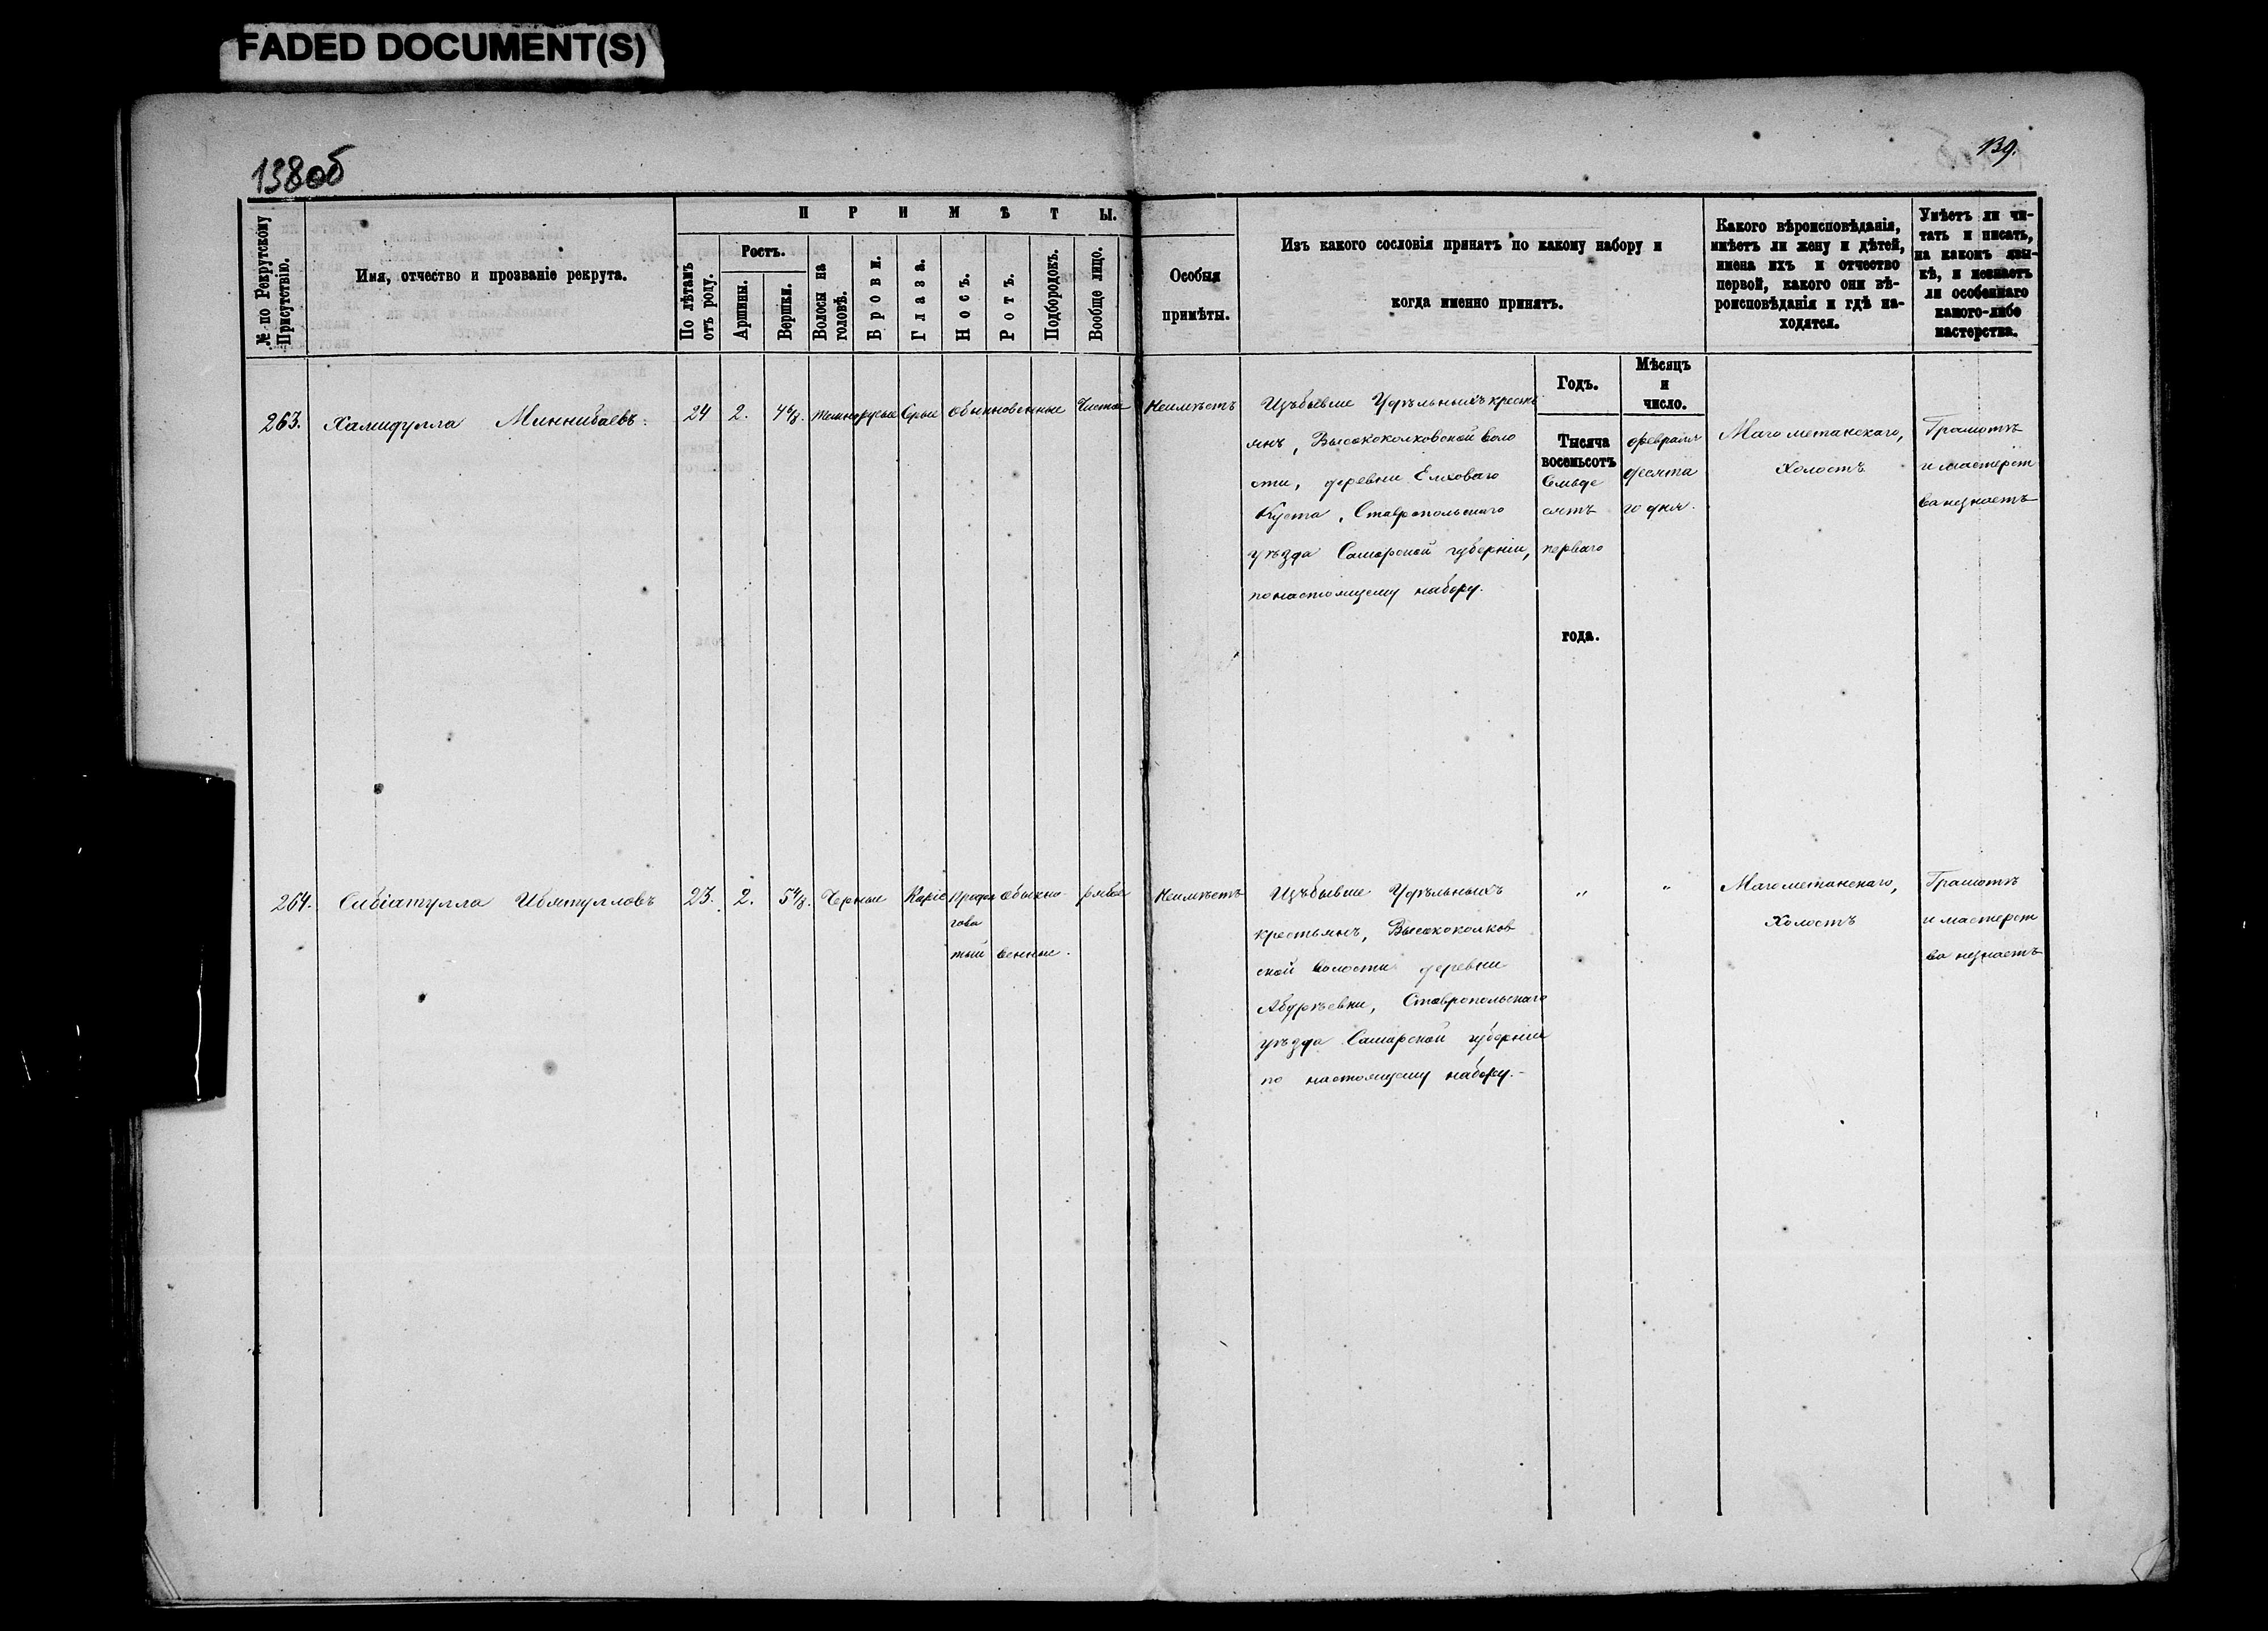 FADED DOCUMENT(S)
138об
139.
П Р И М Ѣ Т Ы.
№ по Рекрутскому Присутствію.
Имя, отчество и прозваніе рекрута.
По лѣтамъ отъ роду.
Ростъ.
Аршины.
Вершки.
Волосы на головѣ.
Брови.
Глаза.
Носъ.
Ротъ.
Подбородокъ.
Вообще лицо.
Особыя
примѣты.
Изъ какого сословія принятъ по какому набору и
когда именно принятъ.
Годъ.
Мѣсяцъ
и
число.
Какого вѣроисповѣданія,
имѣетъ ли жену и дѣтей,
имена ихъ и отчество
первой, какого они вѣ-
роисповѣданія и гдѣ на-
ходятся.
Умѣетъ ли чи-
тать и писать,
на какомъ язы-
кѣ, и незнаетъ
ли особеннаго
какого-либо
мастерства.
263.
Хамидулла Миннибаевъ.
24
2.
Темнорусые
Серые
Обыкновенные
Чистое
Неимѣетъ
Изъ бывше Удѣльныхъ кресть
янъ, Высококолковской воло
сти, деревни Елховаго
Куста, Ставропольскаго
уѣзда Самарской губерніи,
по настоящему набору.
Тысяча
восемьсотъ
Семьде
сятъ
перваго
года.
февраля
десята
го дня.
Магометанскаго,
Холостъ
Грамотѣ
и мастерст
ва незнаетъ
264.
23.
2.
Черные
Каріе
Продол
гова
тый
Обыкно-
венные.
рябое
Неимѣетъ
Изъ бывше Удѣльныхъ
крестьянъ, Высококолков
ской волости деревни
Ставропольскаго
уѣзда Самарской губерніи
по настоящему набору.-
"
"
Магометанскаго,
Холостъ
Грамотѣ
и мастерст
ва незнаетъ